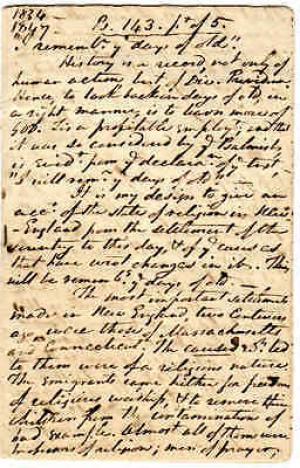 1834
1847
Ps. 143. pt of 5.
"I rememb.r y days of old".
History is a record, not only of
human action but of Div. Providen.
Hence to look back in days of old, in
a right manner, is to learn more of
God. Tis a profitable employt; and that
it was so considered by y Psalmist,
is evidt from y declaran of y text
"I will remr y days of old"
It is my design to give an
acct of the state of religion in New
England from the settlement of the
country to this day, & of y causes
that have wrot changes in it. This
will be rememb.g y days of old
The most important settlements
made in New England, two Centuries
ago were those of Massachusetts
and Connecticut; The causes led
to them were of a religious nature.
The Emigrants came hither for freedom
of religious worship, & to remove their
children from the contamination of
bad example. Almost all of them were
professors of religion; men of prayer,